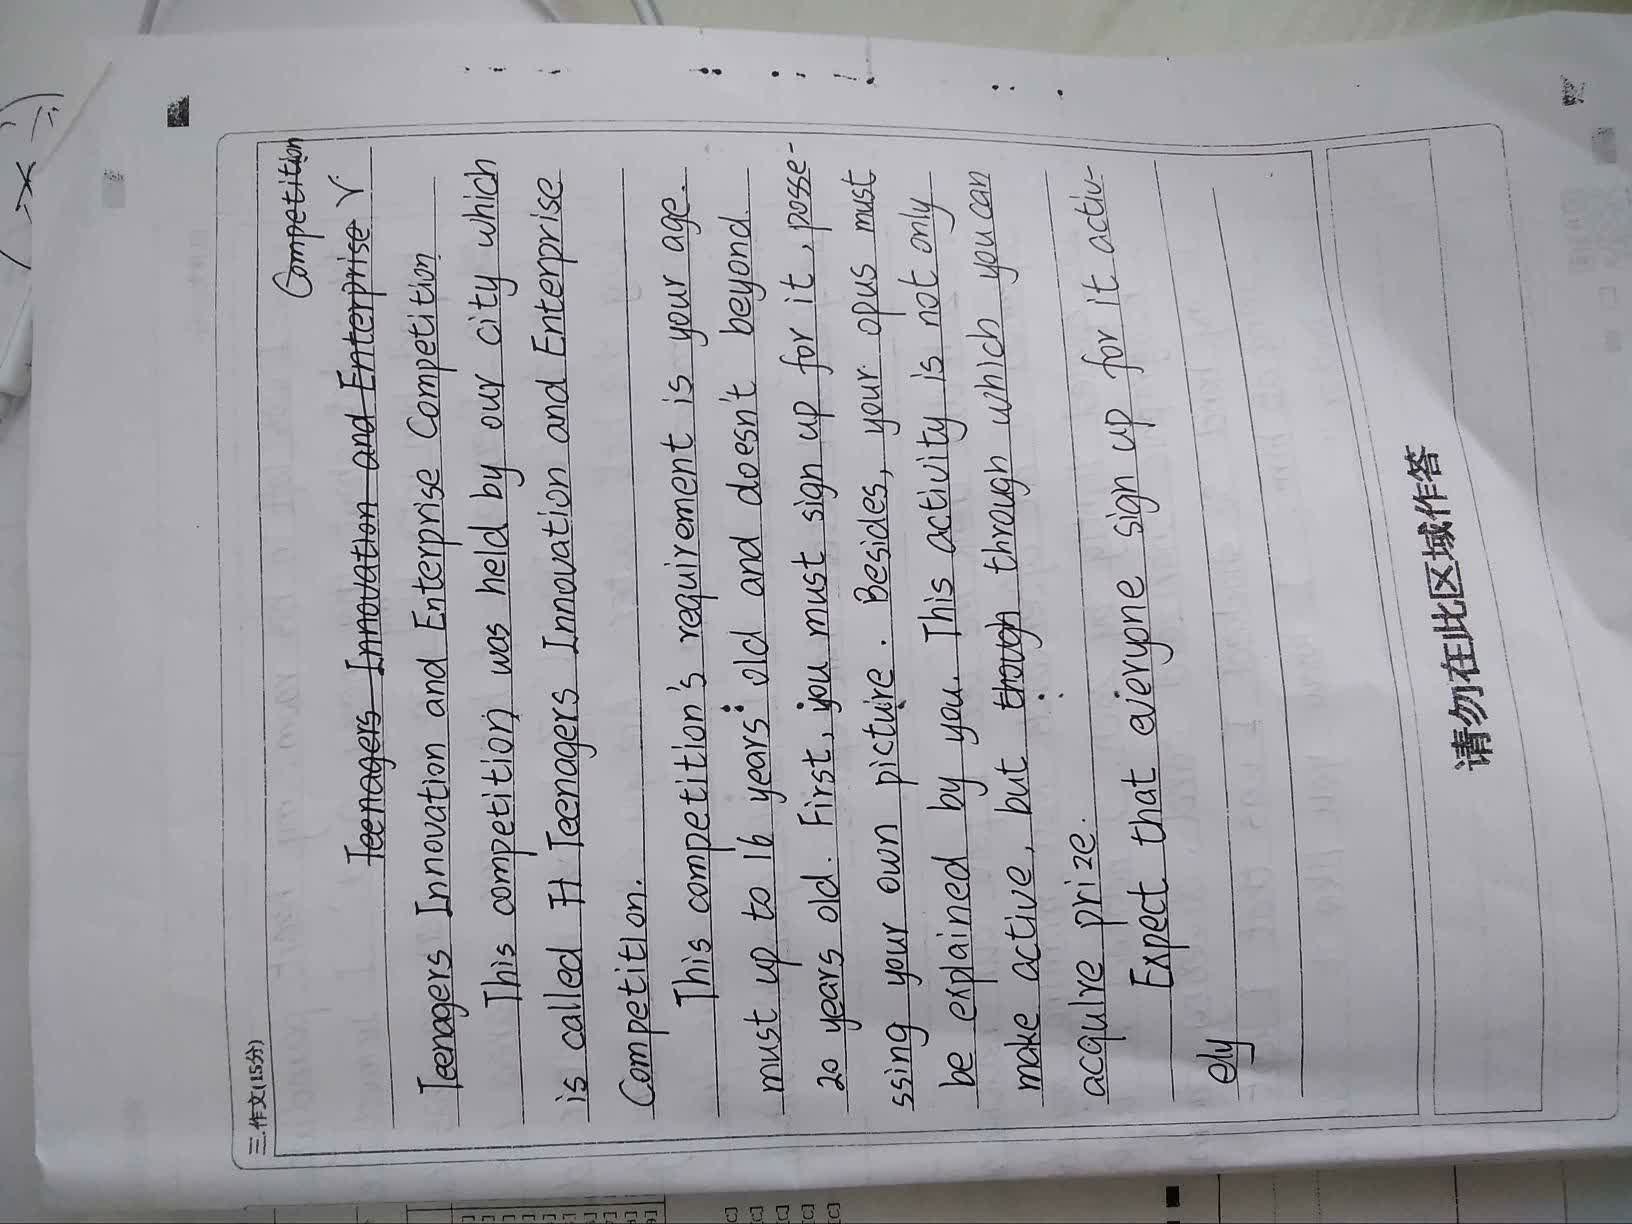 三.作文(15分)
Competition
Teenagers Innovation and Enterprise
Teenagers Innovation and Enterprise Competition
This competition was held by our city which
is called It Teenagers Innovation and Enterprise
Competition.
This competition's requirement is your age.
must up to 16 years old and doesn't beyond
20 years old. First, you must sign up for it, posse-
ssing your own picture. Besides, your opus must
be explained by you. This activity is not only
make active, but though through which you can
acquire prize.
Expect that everyone sign up for it activ-
ely
请勿在此区域作答